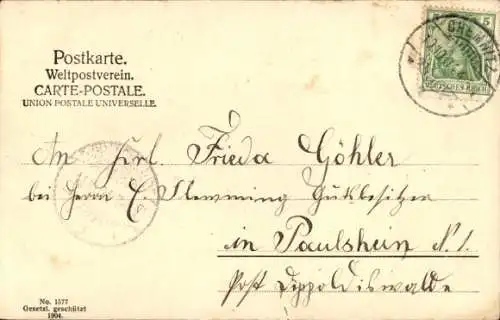 Postkarte.
Weltpostverein.
CARTE-POSTALE.
UNION POSTALE UNIVERSELLE.
5
CHEMNITZ
DEUTSCHES REICH
An Frl. Frieda Göhler
bei Herrn C. Flemming Gutsbesitzer
in Paulshein N. 1.
Post Dippoldiswalde
No. 1577
Gesetzl. geschützt
1904.